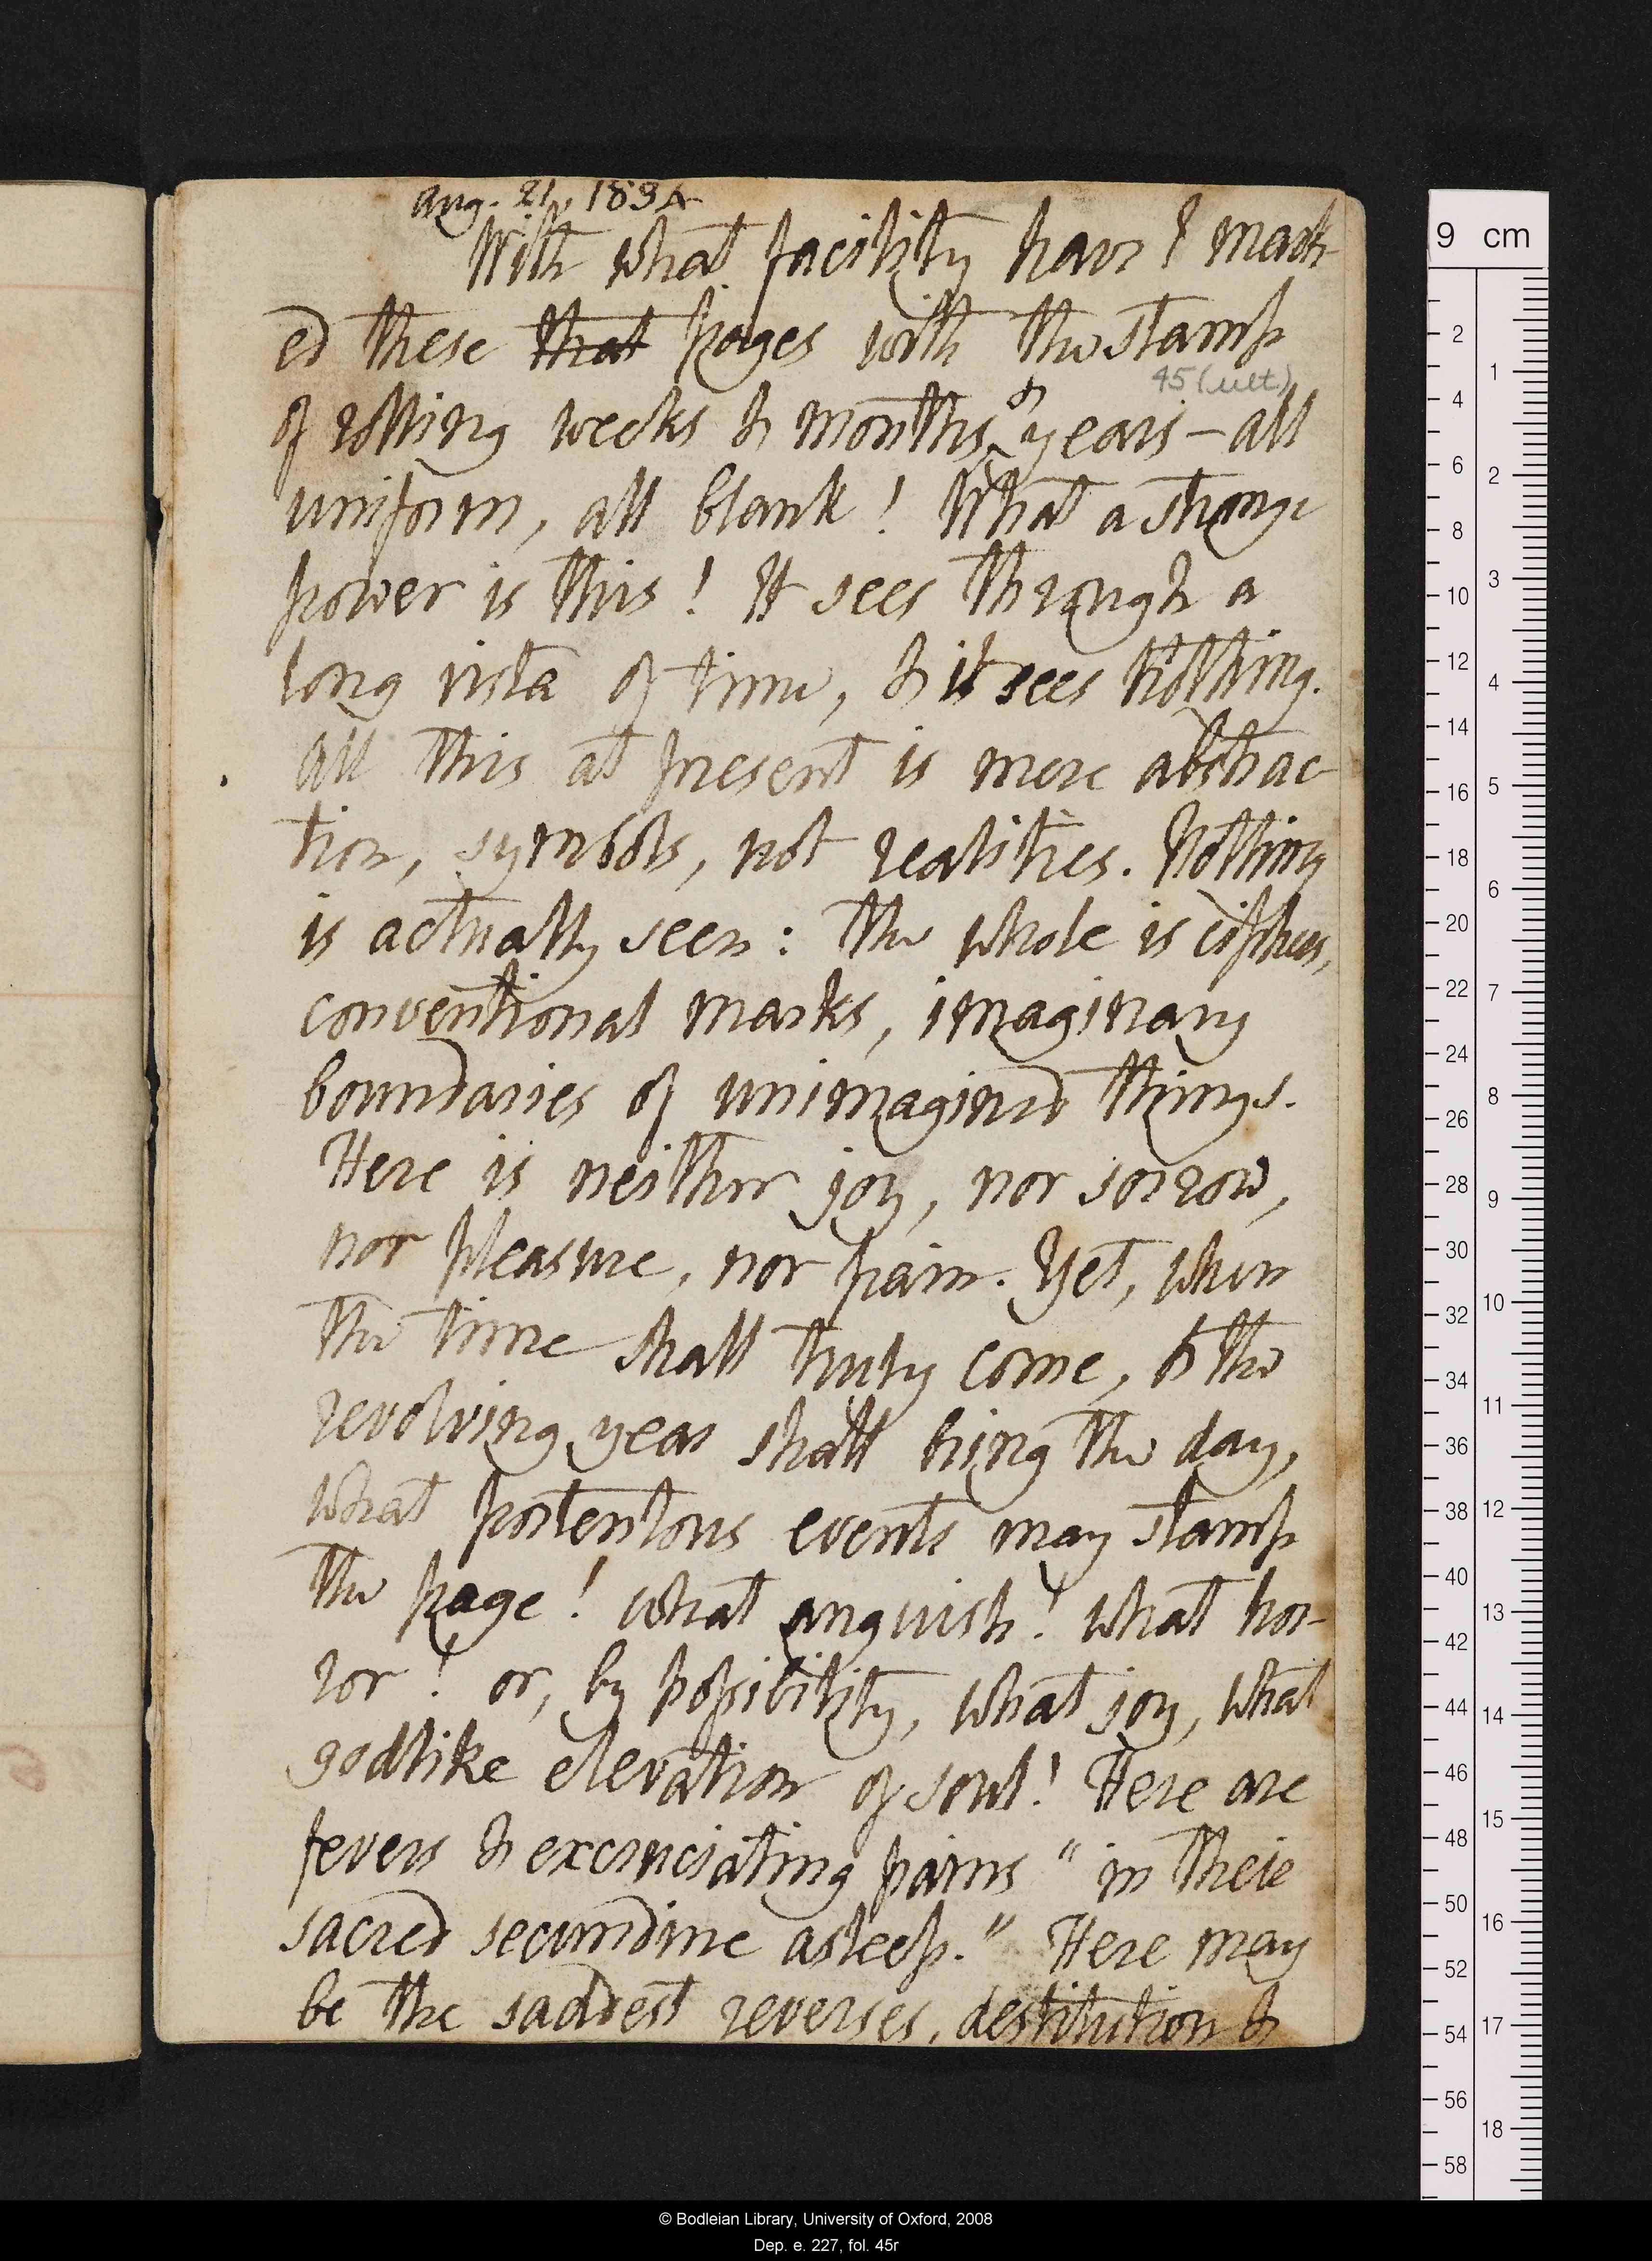 Aug. 21, 1834
With what facility have I mark-
ed these that pages with the stamp
45 (ult.)
of rolling weeks & months & years – all
uniform, all blank! What a strange
power is this! It sees through a
long vista of time, & it sees nothing.
All this at present is mere abstrac-
tion, symbols, not realities. Nothing
is actually seen: the whole is ciphers,
conventional marks, imaginary
boundaries of unimagined things.
Here is neither joy, nor sorrow,
nor pleasure, nor pain. Yet, when
the time shall truly come, & the
revolving year shall bring the day,
what portentous events may stamp
the page! what anguish! what hor-
ror! or, by possibility, what joy, what
godlike elevation of soul! Here are
fevers & excruciating pains "in their
sacred secundine asleep." Here may
be the saddest reverses, destitution &
9 cm
2 4 6 8 10 12 14 16 18 20 22 24 26 28 30 32 34 36 38 40 42 44 46 48 50 52 54 56 58
1 2 3 4 5 6 7 8 9 10 11 12 13 14 15 16 17 18
© Bodleian Library, University of Oxford, 2008
Dep. e. 227, fol. 45r